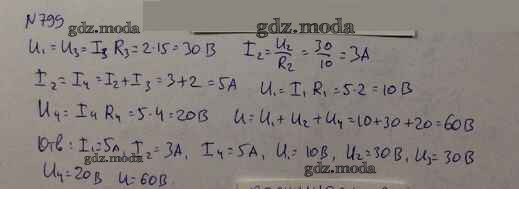 N799
gdz.moda
gdz.moda
U₁ = U₃ = I₃ R₃ = 2·15 = 30 В I₂ = U₂/R₂ = 30/10 = 3А
I₂ = I₄ = I₂ + I₃ = 3 + 2 = 5А U₁ = I₁ R₁ = 5·2 = 10В
U₄ = I₄ R₄ = 5·4 = 20В U = U₁ + U₂ + U₄ = 10+30+20 = 60В
Отв: I₁ = 5А, I₂ = 3А, I₄ = 5А, U₁ = 10В, U₂ = 30В, U₃ = 30В
gdz.moda
gdz.moda
U₄ = 20В U = 60В.